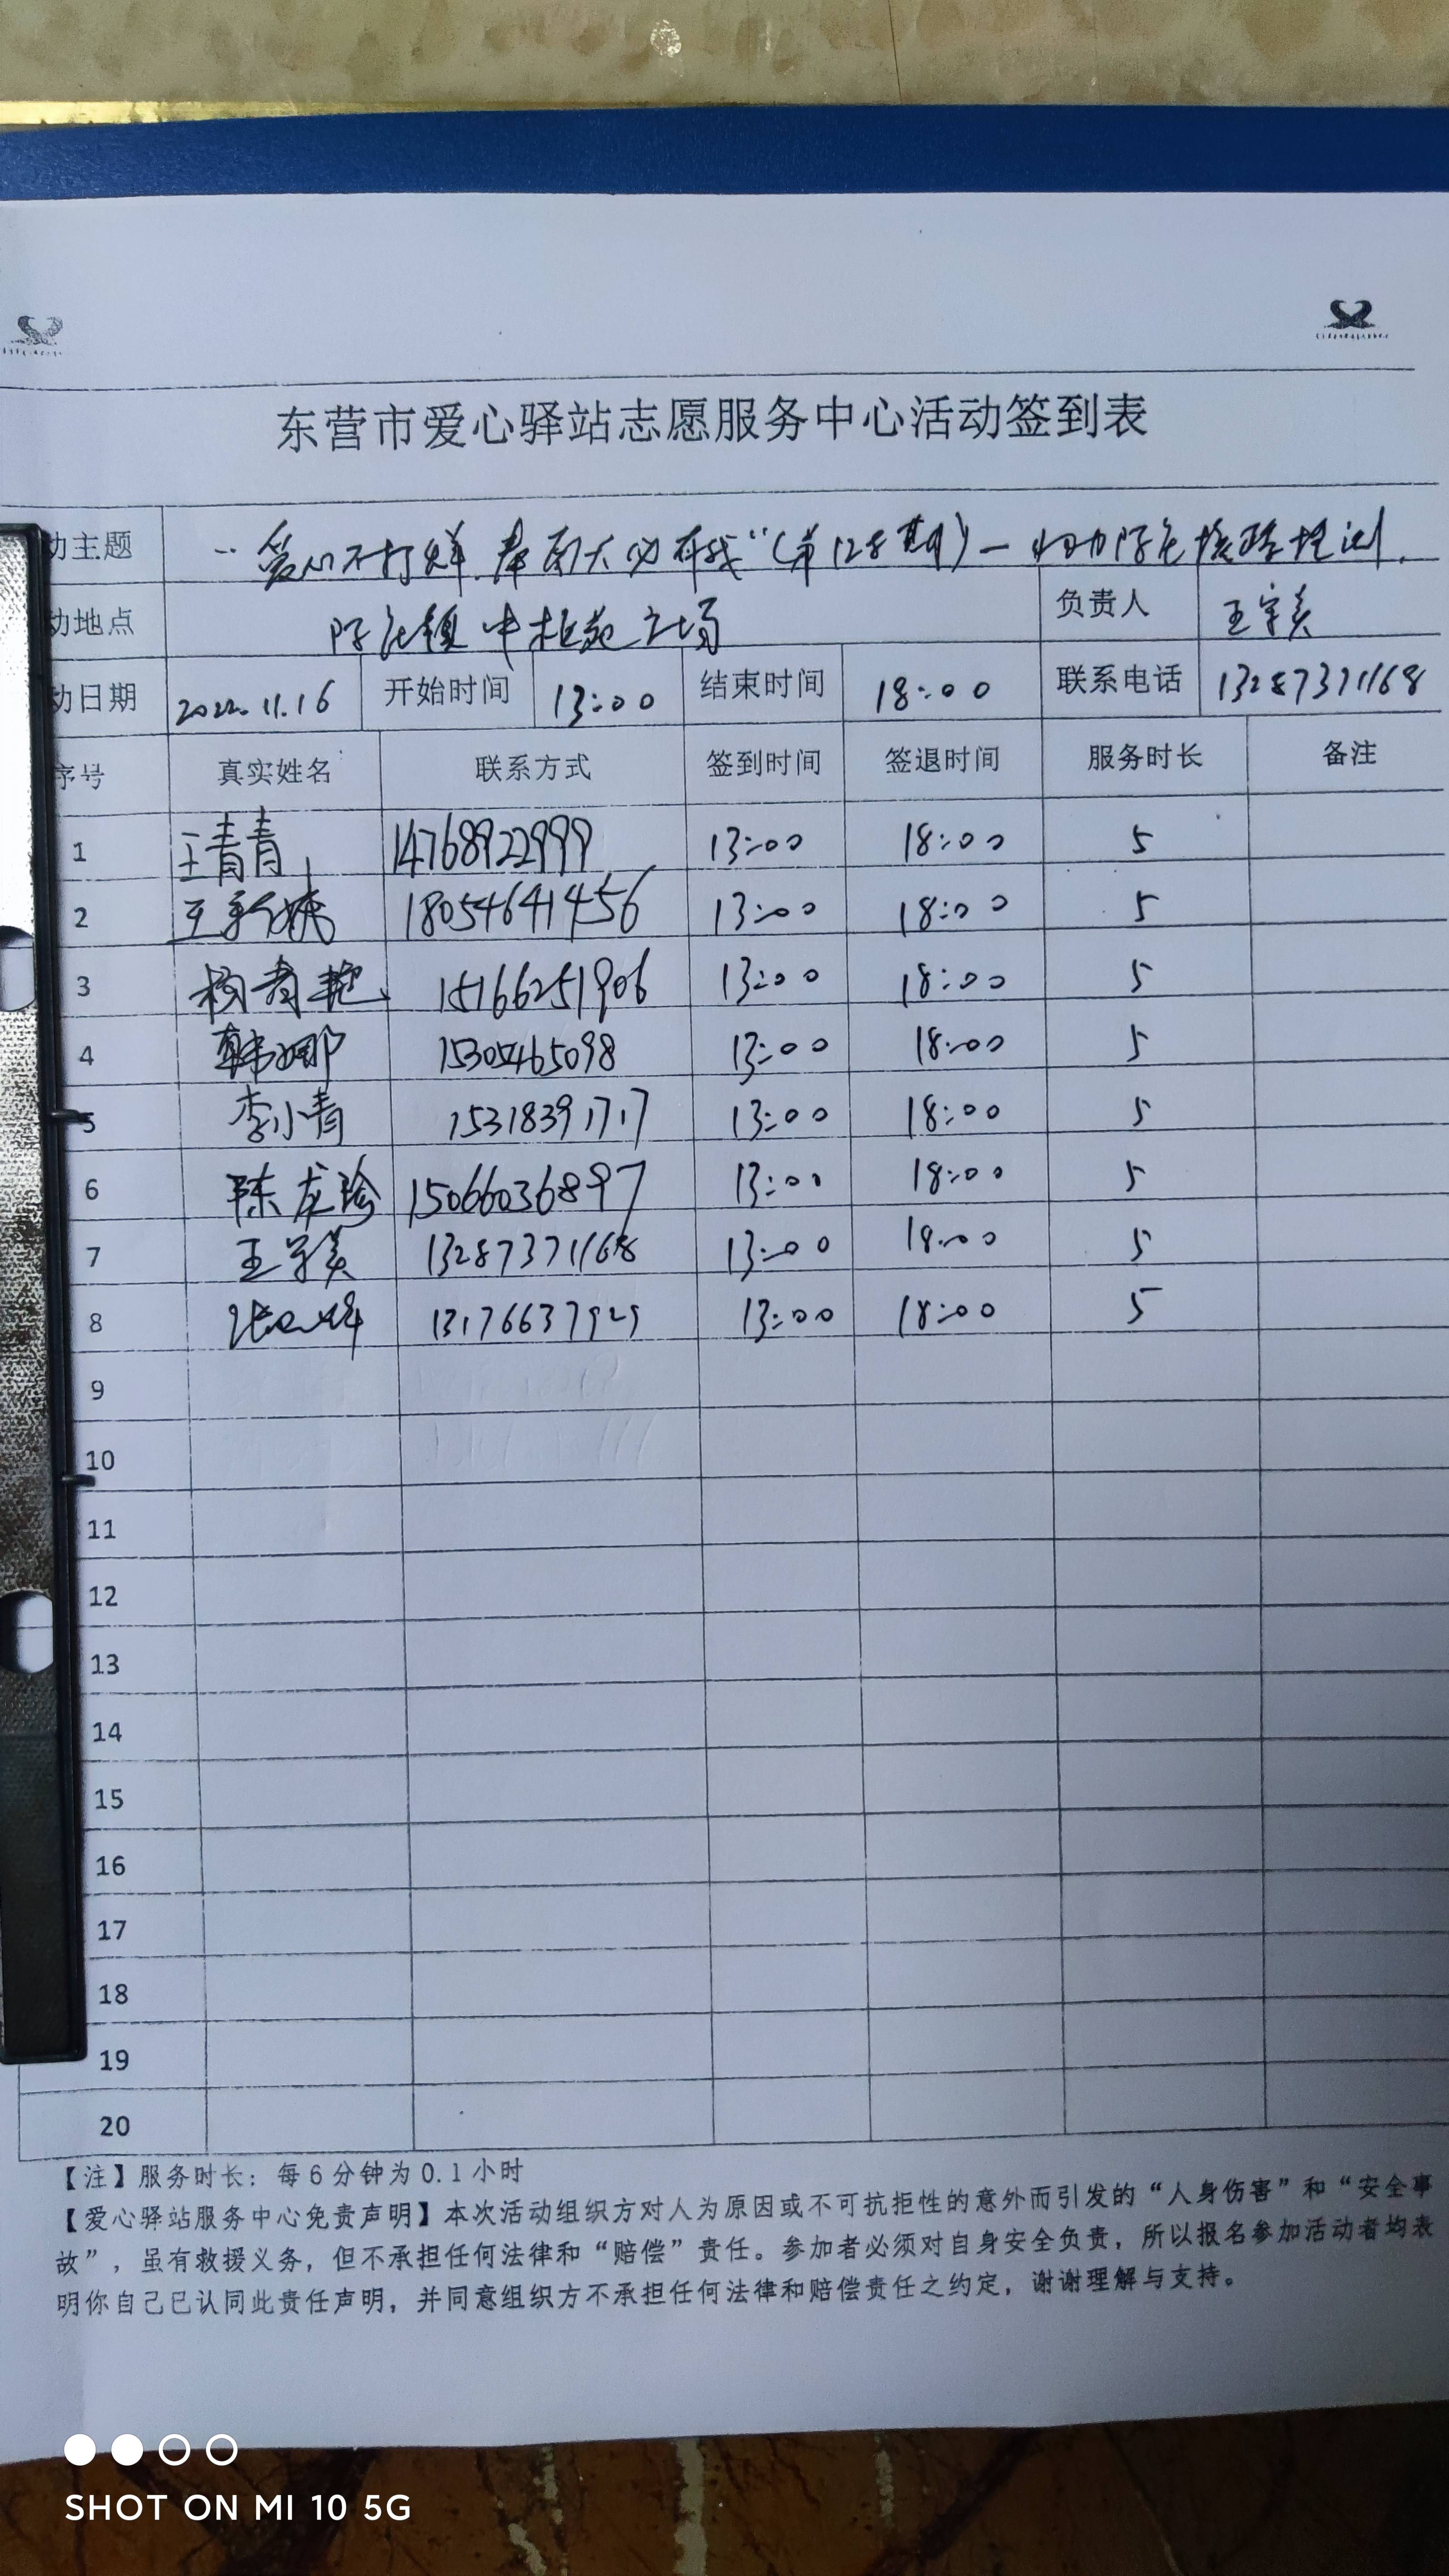 东营市爱心驿站志愿服务中心活动签到表
动主题 爱心不打烊 奉献大 在线"(第128期)— 协助陈庄 核酸 检测
动地点 陈庄镇中 苑广场 负责人 王宇美
动日期 2022.11.16 开始时间 13:00 结束时间 18:00 联系电话 13287371168
序号 真实姓名 联系方式 签到时间 签退时间 服务时长 备注
1 王青青 14768922999 13:00 18:00 5
2 王新 18054641456 13:00 18:00 5
3 杨青艳 15166251906 13:00 18:00 5
4 韩娜 15305465098 13:00 18:00 5
5 李小青 15318391717 13:00 18:00 5
6 陈龙珍 15066036897 13:00 18:00 5
7 王宇美 13287371168 13:00 18:00 5
8 张 13176637929 13:00 18:00 5
9
10
11
12
13
14
15
16
17
18
19
20
【注】服务时长：每6分钟为0.1小时
【爱心驿站服务中心免责声明】本次活动组织方对人为原因或不可抗拒性的意外而引发的“人身伤害”和“安全事
故”，虽有救援义务，但不承担任何法律和“赔偿”责任。参加者必须对自身安全负责，所以报名参加活动者均表
明你自己已认同此责任声明，并同意组织方不承担任何法律和赔偿责任之约定，谢谢理解与支持。
SHOT ON MI 10 5G